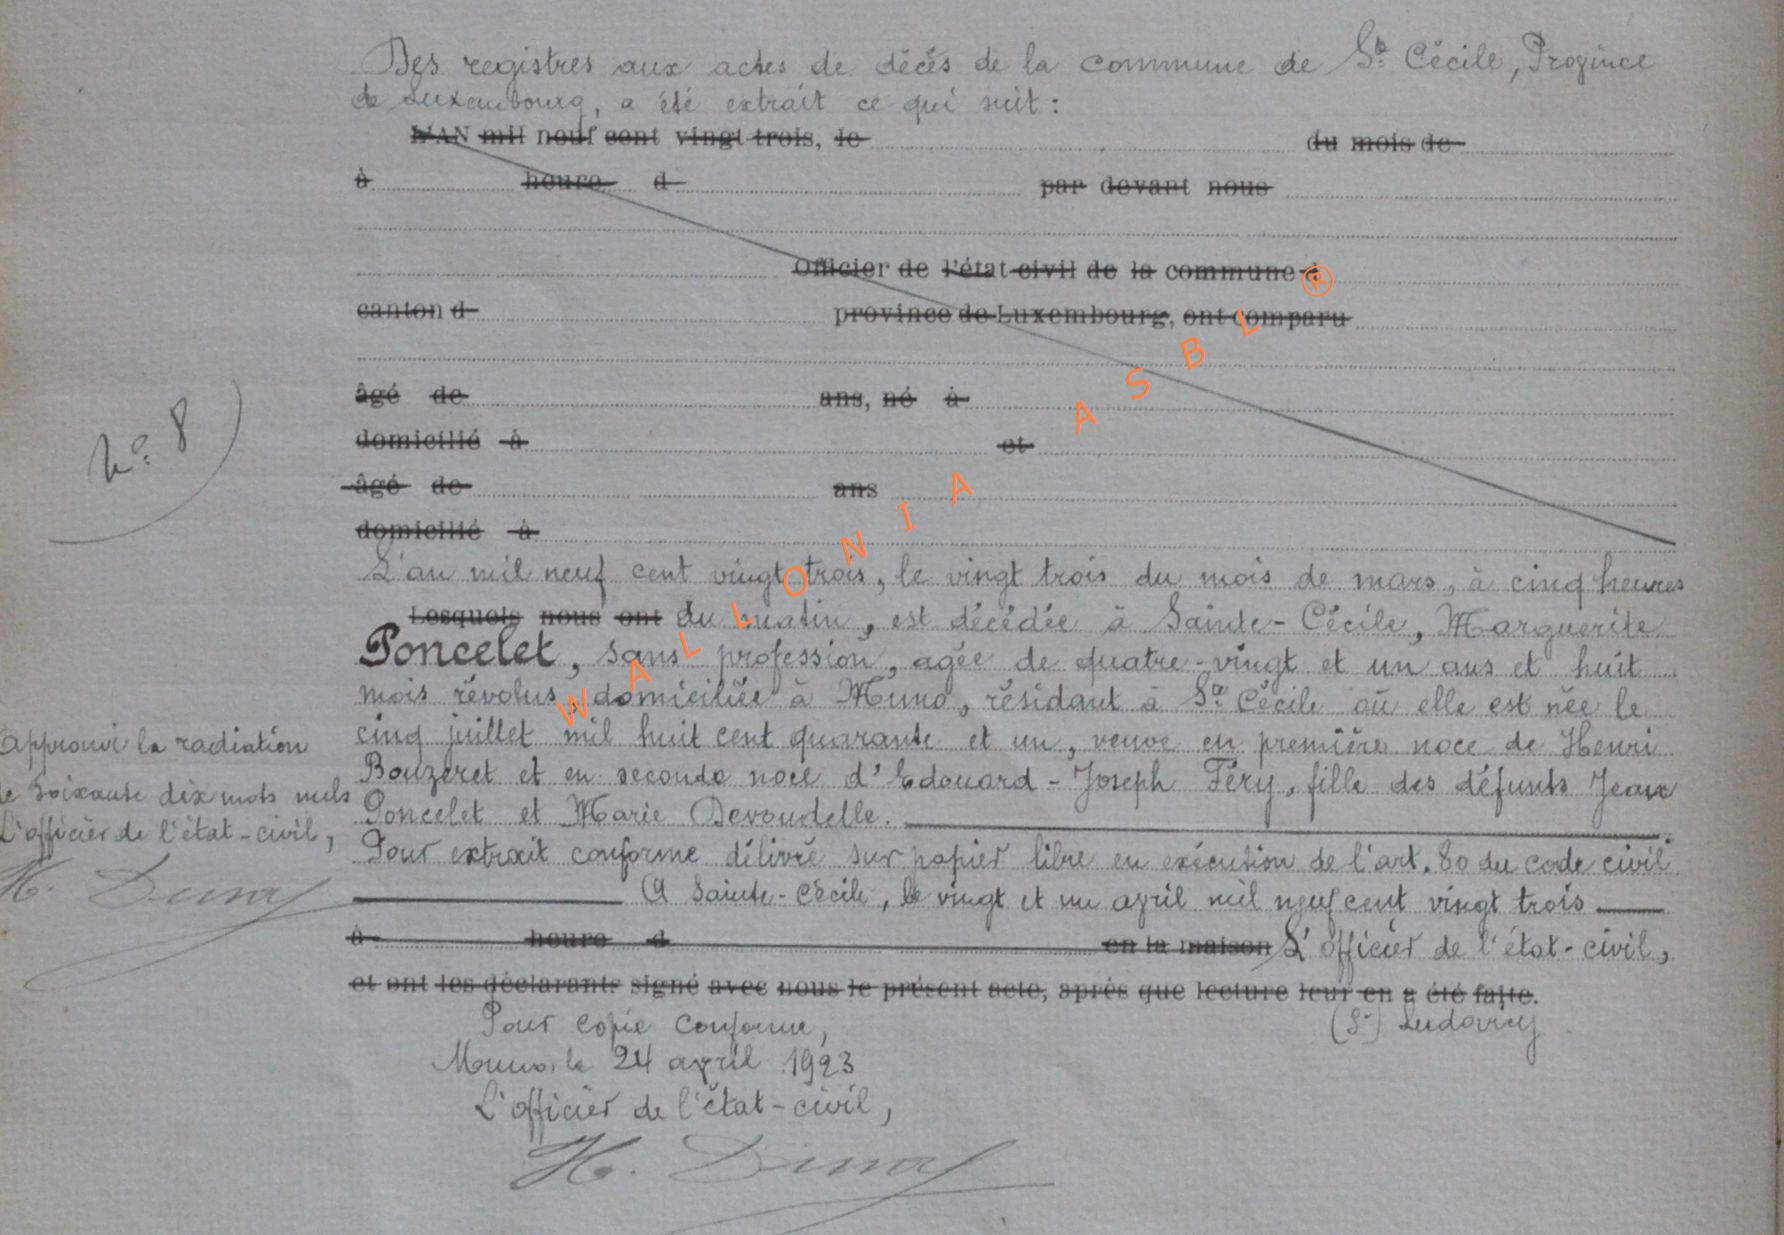 Des registres aux actes de décès de la commune de Ste Cécile, Province
de Luxembourg, a été extrait ce qui suit :
L'AN mil neuf cent vingt trois, le du mois de
à heure d par devant nous
Officier de l'état civil de la commune à
canton d province de Luxembourg, ont comparu
âgé de ans, né à
domicilié à et
âgé de ans
domicilié à
N° 8
L'an mil neuf cent vingt trois, le vingt trois du mois de mars, à cinq heures
Lesquels nous ont du matin, est décédée à Sainte-Cécile, Marguerite
Poncelet, sans profession, agée de quatre-vingt et un ans et huit
mois révolus, domiciliée à Muno, résidant à Ste Cécile où elle est née le
cinq juillet mil huit cent quarante et un, veuve en première noce de Henri
Bouzeret et en seconde noce d'Edouard-Joseph Féry, fille des défunts Jean
Poncelet et Marie Devoudelle.
Pour extrait conforme délivré sur papier libre en exécution de l'art. 80 du code civil
A Sainte-Cécile, le vingt et un avril mil neuf cent vingt trois
à heure d en la maison L'officier de l'état-civil,
et ont les déclarants signé avec nous le présent acte, après que lecture leur en a été faite.
(Sr) Ludovicy
Pour copie conforme,
Muno, le 24 avril 1923
L'officier de l'état-civil,
Approuvé la radiation
de soixante dix mots nuls
L'officier de l'état-civil,
WALLONIA ASBL ®